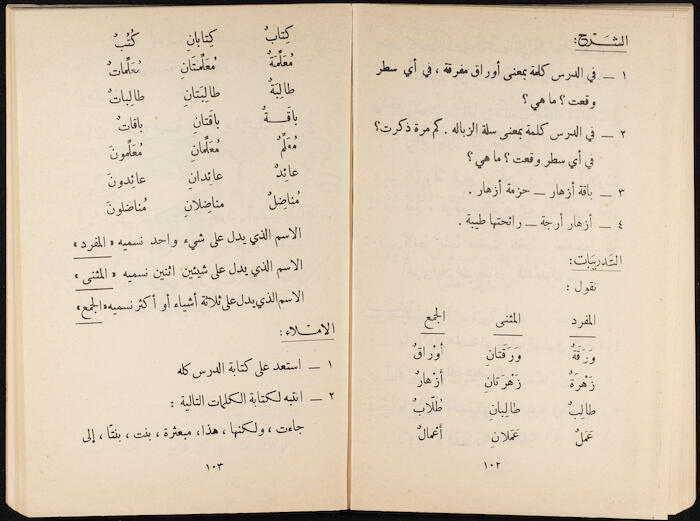 الشَّرْح :
١ ــ في الدرس كلمة بمعنى أوراق مفرقة ، في أي سطر
وقعت ؟ ما هي ؟
٢ ــ في الدرس كلمة بمعنى سلة الزباله . كم مرة ذكرت ؟
في أي سطر وقعت ؟ ما هي ؟
٣ ــ باقة أزهار ــ حزمة أزهار .
٤ ــ أزهار أرجة ــ رائحتها طيبة .
التَّدريبَات :
نقول :
المفرد المثنى الجمع
وَرَقَةٌ وَرَقَتانِ أَوْراقٌ
زَهْرَةٌ زَهْرَتانِ أَزْهارٌ
طالِبٌ طالِبانِ طُلّابٌ
عَمَلٌ عَمَلانِ أَعْمالٌ
١٠٢
كِتابٌ كِتابانِ كُتُبٌ
مُعَلِّمَةٌ مُعَلِّمَتَانِ مُعَلِّماتٌ
طالِبَةٌ طالِبَتَانِ طالِباتٌ
باقَةٌ باقَتانِ باقاتٌ
مُعَلِّمٌ مُعَلِّمانِ مُعَلِّمونَ
عائِدٌ عائِدانِ عائِدونَ
مُناضِلٌ مناضِلانِ مُناضلونَ
الاسم الذي يدل على شيء واحد نسميه « المفرد »
الاسم الذي يدل على شيئين اثنين نسميه « المثنى »
الاسم الذي يدل على ثلاثة أشياء أو أكثر نسميه « الجمع »
الامتلاء :
١ ــ استعد على كتابة الدرس كله
٢ ــ انتبه لكتابة الكلمات التالية :
جاءت ، ولكنها ، هذا ، مبعثرة ، بنت ، بنتا ، إلى
١٠٣